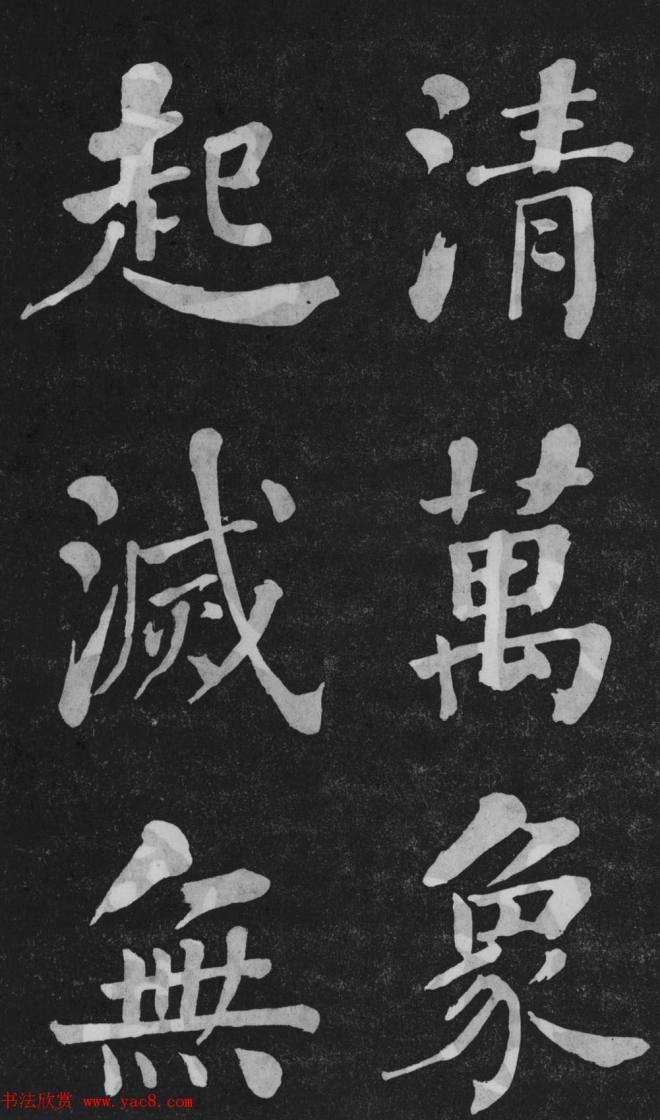 清萬象
起滅無
书法欣赏 www.yac8.com